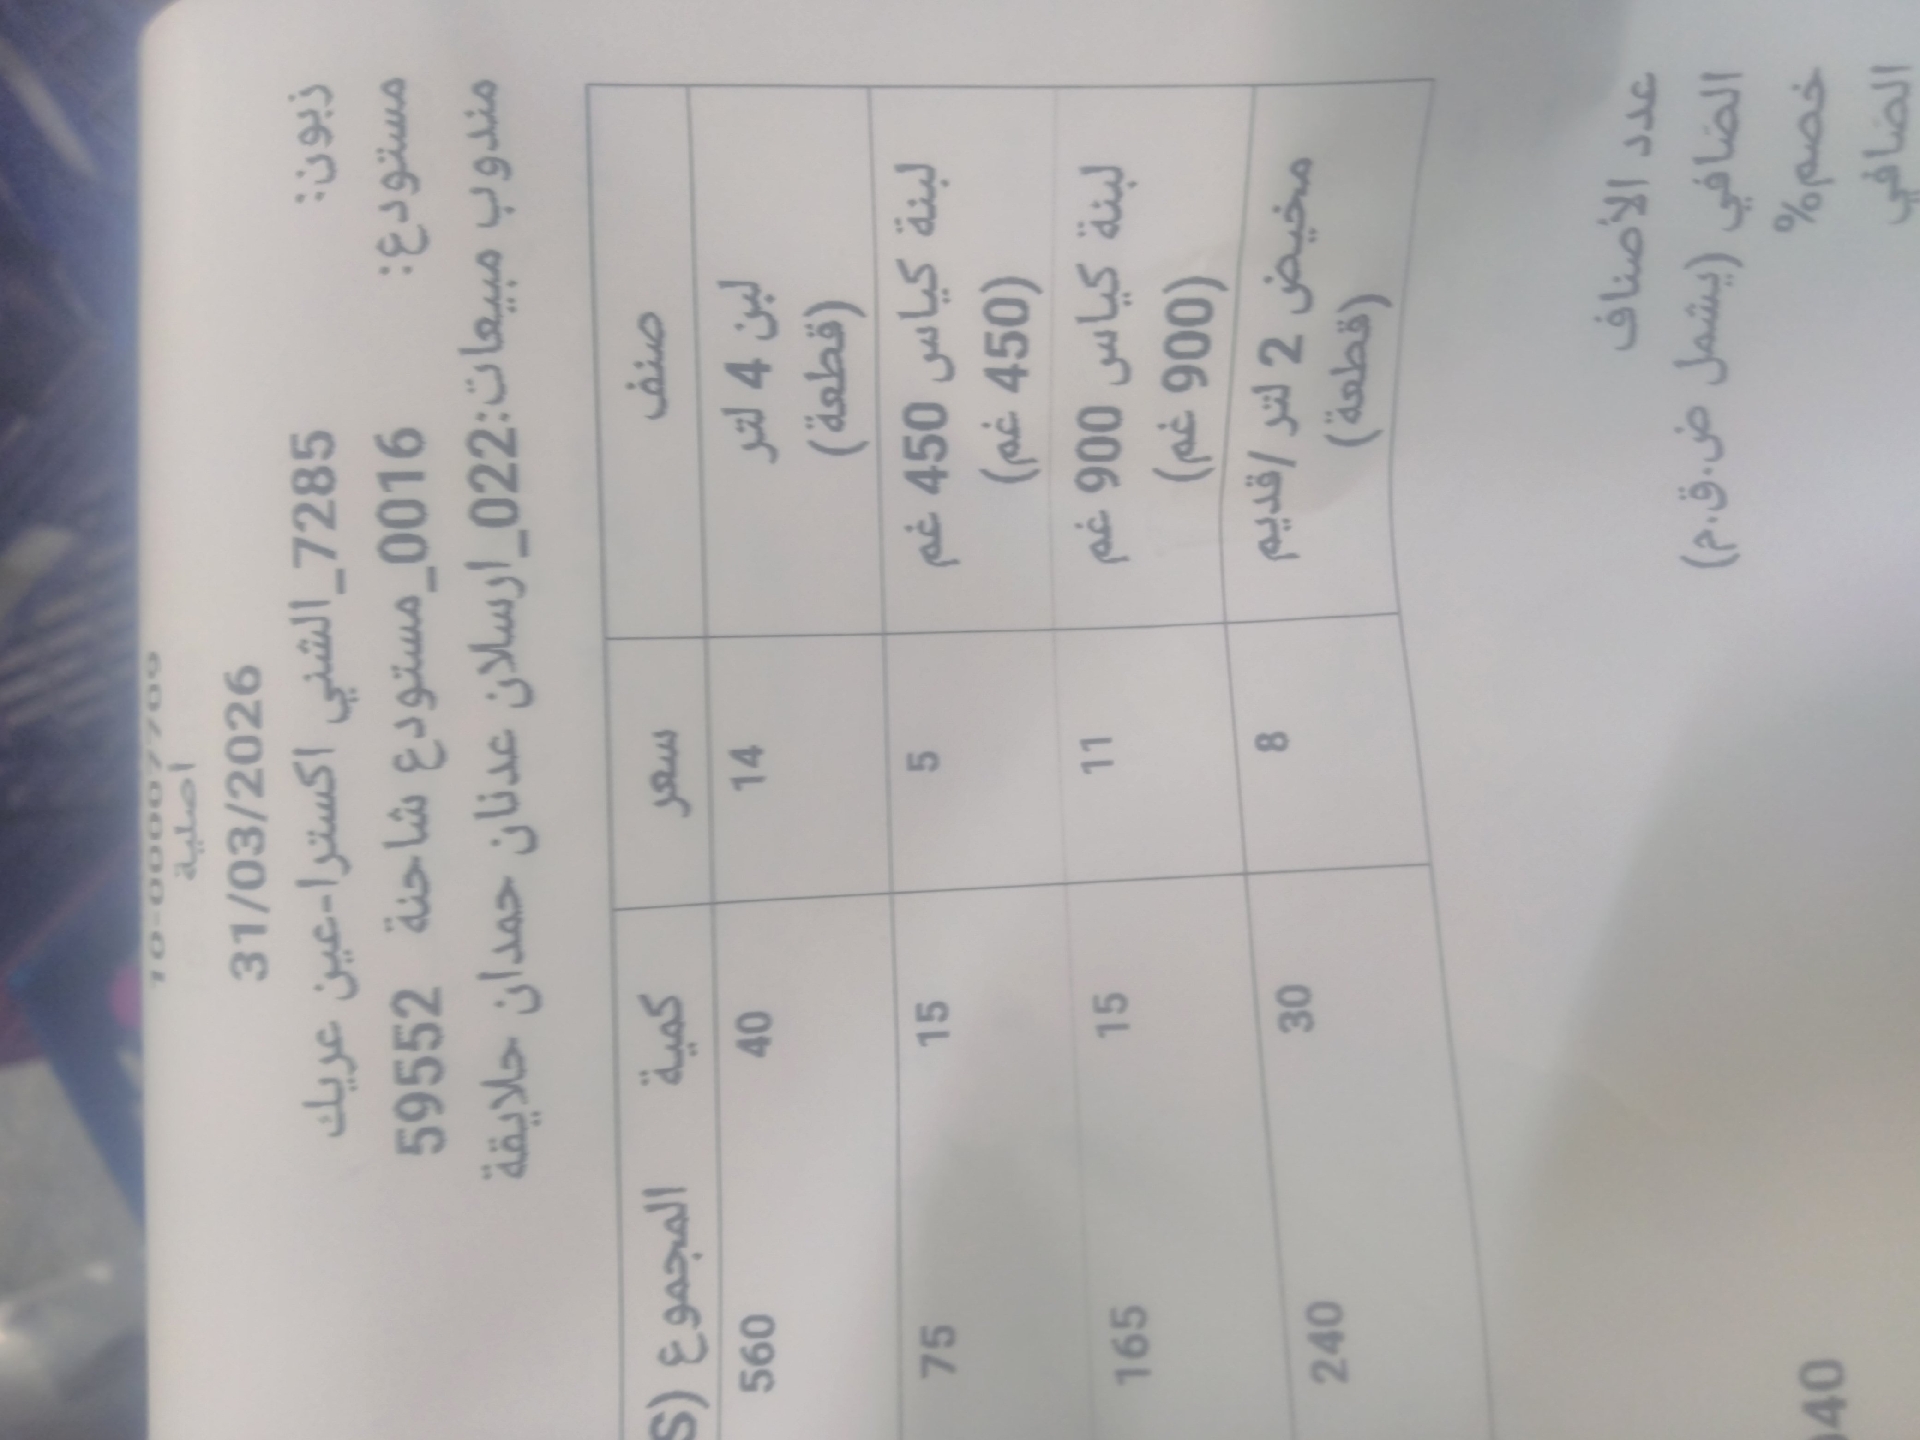 10-00007709
اصلية
31/03/2026
زبون: 7285_الشني اكسترا-عين عريك
مستودع: 0016_مستودع شاحنة 59552
مندوب مبيعات:022_ارسلان عدنان حمدان حلايقة
صنف سعر كمية المجموع (S
لبن 4 لتر 14 40 560
(قطعة)
لبنة كياس 450 غم 5 15 75
(450 غم)
لبنة كياس 900 غم 11 15 165
(900 غم)
مخيض 2 لتر /قديم 8 30 240
(قطعة)
عدد الأصناف
الصافي (يشمل ض.ق.م)
خصم% 040
الصافي